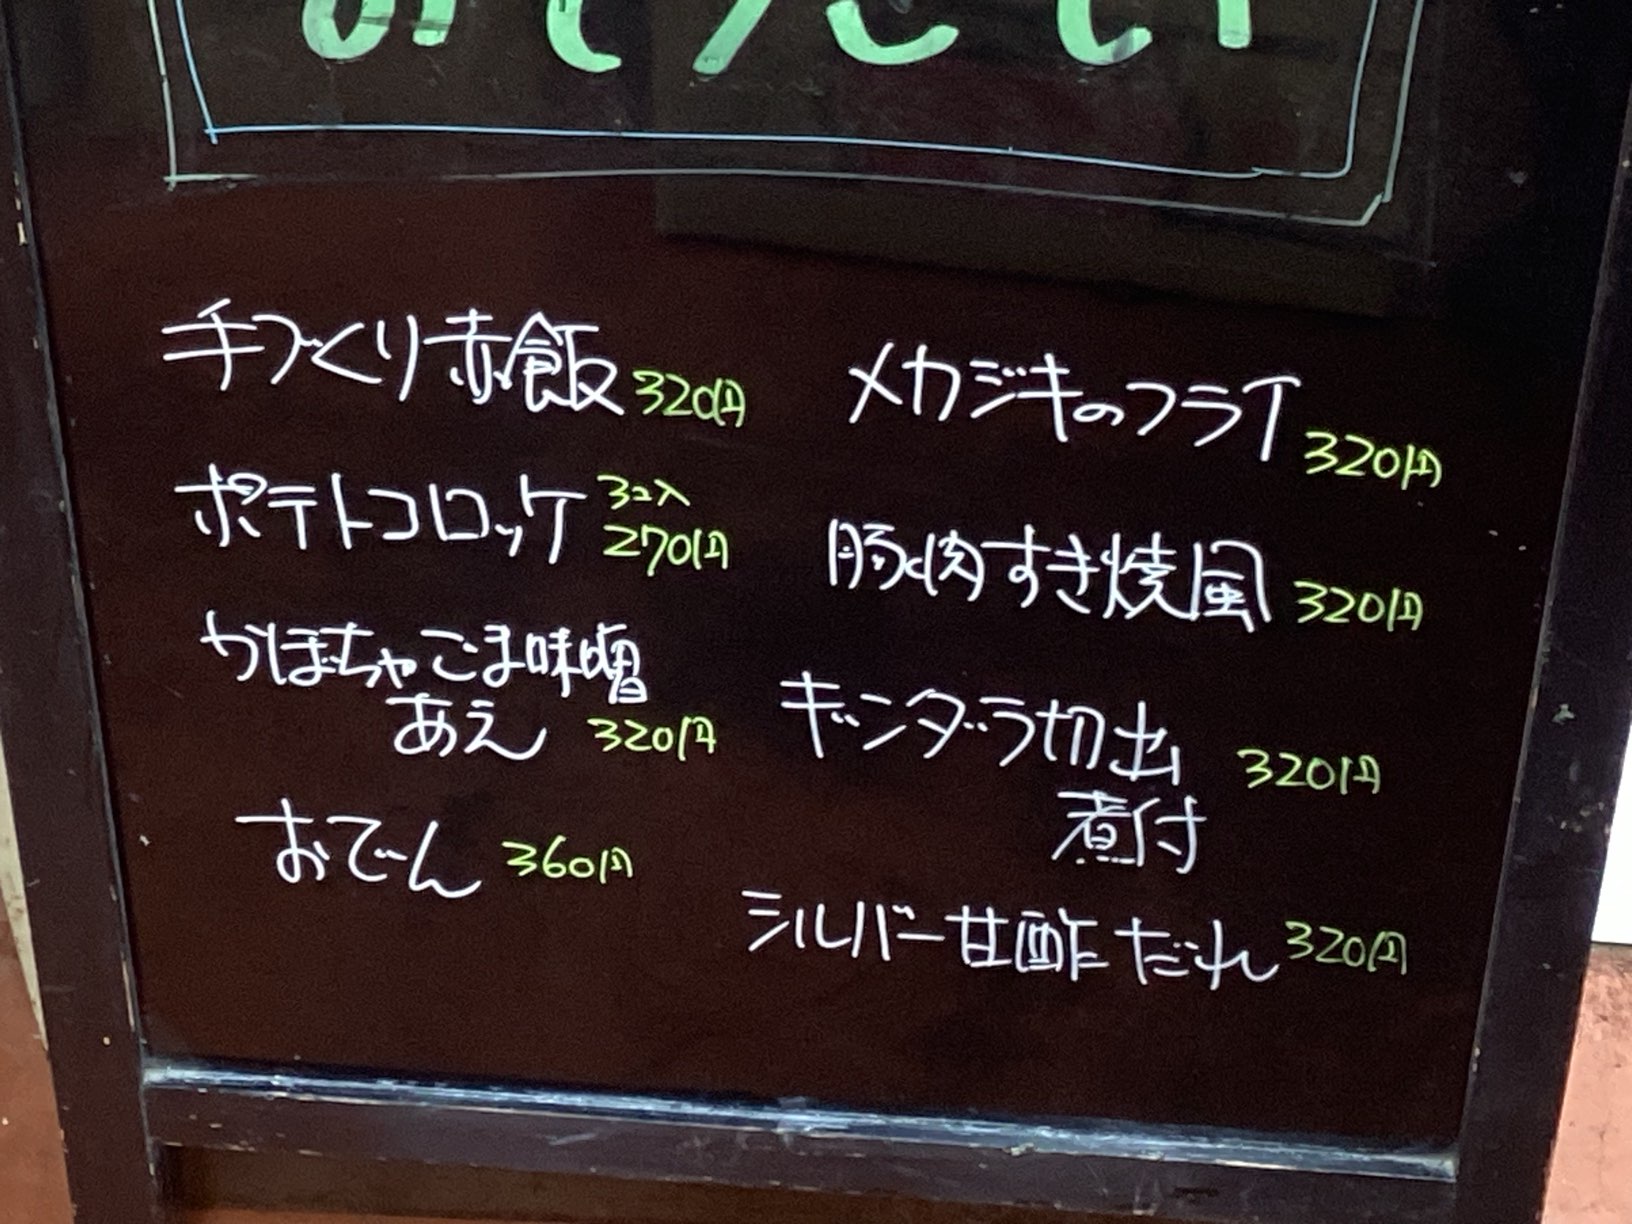 手づくり赤飯 320円
ポテトコロッケ 3コ入 270円
かぼちゃごま味噌
あえ 320円
おでん 360円
メカジキのフライ 320円
豚肉すき焼風 320円
ギンダラ切出 320円
煮付
シルバー甘酢だれ 320円